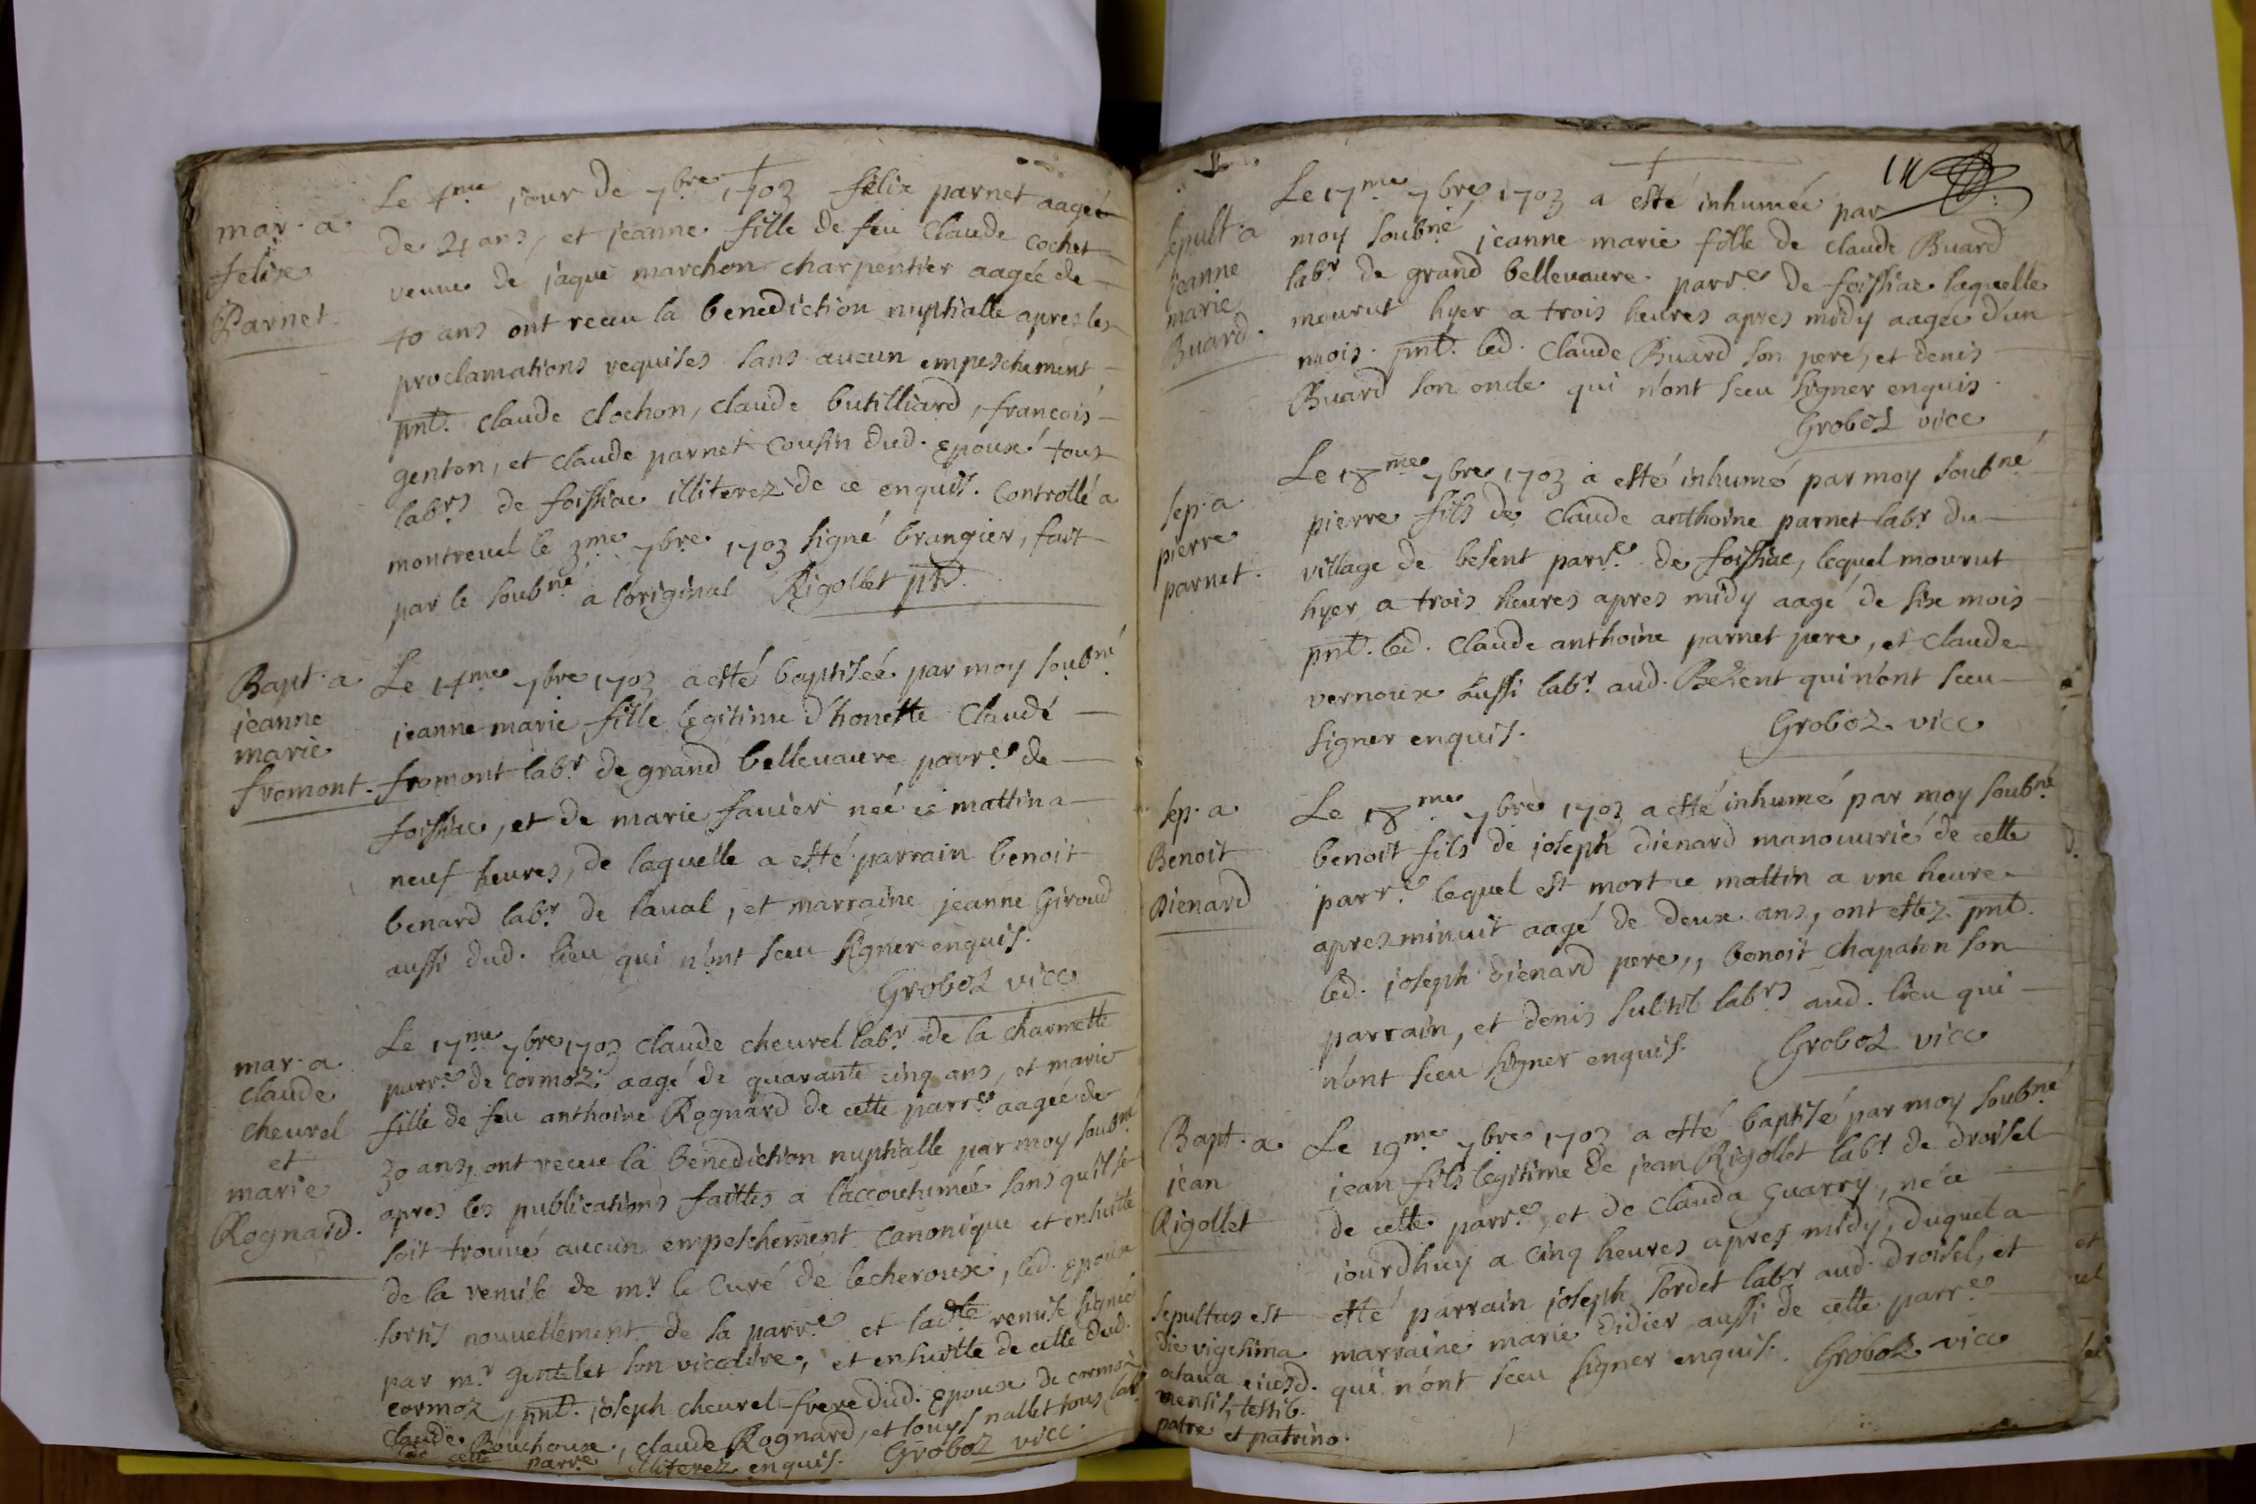 mar. a
felix
Parnet
Le 4me jour de 7bre 1703 felix parnet aagé
de 24 ans, et jeanne fille de feu Claude cochet
veuue de jaque marchon charpentier aagée de
40 ans ont receu la benediction nuptialle apres les
proclamations requises sans aucun empeschement,
pnt. Claude Clochon, claude butilliard, francois
genton, et claude parnet cousin dud. epoux tous
labrs de foissiac illiterez de ce enquis. Controllé a
montreuel le 3me 7bre 1703 signé brangier, fait
par le soubné a loriginal Rigollet ptr.
Bapt. a
jeanne
marie
fromont.
Le 14me 7bre 1703 a esté baptisée par moy soubné
jeanne marie fille legitime d'honeste Claude
fromont labr de grand belleuaure parre de
foissiac, et de marie fauier née ce mattin a
neuf heures, de laquelle a esté parrain benoit
benard labr de laual, et marraine jeanne Giroud
aussi dud. lieu qui n'ont sceu signer enquis.
Groboz vicc
mar. a
claude
cheurel
et
marie
Rognard.
Le 17me 7bre 1703 claude cheurel labr de la charmette
parre de cormoz aagé de quarante cinq ans, et marie
fille de feu anthoine Rognard de cette parre aagée de
30 ans, ont receu la benediction nuptialle par moy soubné
apres les publications faittes a l'accoutumée sans qu'il se
soit trouué aucun empeschement canonique et ensuitte
de la remise de mr le Curé de lecheroux, led. epoux
sortis nouuellement de sa parre et ladte remise signée
par mr gentelet son viccaire, et ensuitte de celle dud.
cormoz, pnt. joseph cheurel frere dud. epoux de cormoz
Claude Bouchoux, claude Rognard, et louys nallet tous labrs
de cette parre illiterez enquis. Groboz vicc.
Sepult. a
jeanne
marie
Buard.
Le 17me 7bre 1703 a esté inhumée par
moy soubné jeanne marie fille de claude Buard
labr de grand belleuaure parre de foissiac laquelle
mourut hyer a trois heures apres midy aagée d'un
mois. pnt. led. Claude Buard son pere, et denis
Buard son oncle qui n'ont sceu signer enquis.
Groboz vicc
sep. a
pierre
parnet.
Le 18me 7bre 1703 a esté inhumé par moy soubné
pierre fils de Claude anthoine parnet labr du
village de besent parre de foissiac, lequel mourut
hyer a trois heures apres midy aagé de six mois
pnt. led. Claude anthoine parnet pere, et Claude
vernoux aussi labr aud. Bezent qui n'ont sceu
signer enquis. Groboz vicc
sep. a
Benoit
Dienard
Le 18me 7bre 1703 a esté inhumé par moy soubné
benoit fils de joseph dienard manouurié de cette
parre lequel est mort ce mattin a une heure
apres minuit aagé de deux ans, ont estez pnt.
led. joseph dienard pere, benoit chapaton son
parrain, et denis subtil labrs aud. lieu qui
n'ont sceu signer enquis. Groboz vicc
Bapt. a
jean
Rigollet
Le 19me 7bre 1703 a esté baptisé par moy soubné
jean fils legitime de jean Rigollet labr de droisel
de cette parre et de Clauda Guarry, né a
jourdhuy a cinq heures apres midy, duquel a
esté parrain joseph sordet labr aud. droisel, et
marraine marie didier aussi de cette parre
qui n'ont sceu signer enquis. Groboz vicc
Sepultus est
die vigesima
octaua eiusd.
mensis, testib.
patre et patrino.